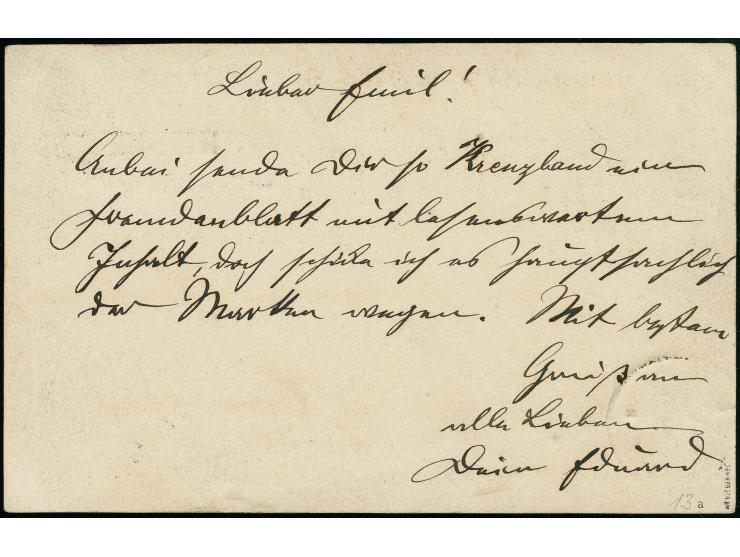 Lieber Emil!
Anbei sende Dir p Kreuzband ein
Fremdenblatt mit lesenswertem
Inhalt, doch schicke ich es hauptsächlich
der Marken wegen. Mit bestem
Gruß an
alle Lieben
Dein Eduard
13 a